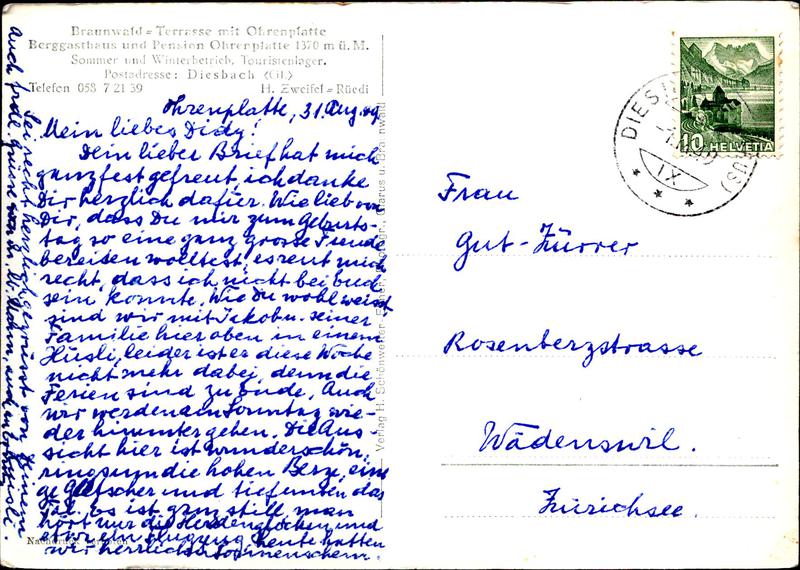 Braunwald = Terrasse mit Ohrenplatte
Berggasthaus und Pension Ohrenplatte 1370 m ü. M.
Sommer und Winterbetrieb, Touristenlager.
Postadresse: Diesbach (Gl.)
Telefon 058 7 21 39 H. Zweifel=Rüedi
Ohrenplatte, 31. Aug. 49
Mein liebes Didy!
Dein lieber Brief hat mich
ganz fest gefreut, ich danke
Dir herzlich dafür. Wie lieb von
Dir, dass Du mir zum Geburts-
tag so eine ganz grosse Freude
bereiten wolltest, es reut mich
recht, dass ich nicht bei Euch
sein konnte. Wie Du wohl weisst
sind wir mit Jakob u. seiner
Familie hier oben in einem
Hüsli, leider ist er diese Woche
nicht mehr dabei, denn die
Ferien sind zu Ende. Auch
wir werden am Sonntag wie-
der hinunter gehen. Die Aus-
sicht hier ist wunderschön,
ringsum die hohen Berge, eini
ge Gletscher und tief unten das
Tal. Es ist ganz still, man
hört nur die Herdenglocken und
etwa ein Flugzeug, heute hatten
wir herrlichen Sonnenschein.
Sei recht herzlich gegrüsst von Deinem
auch frdl. Grüsse von
HELVETIA
10
DIES
IX
Frau
Gut-Zürrer
Rosenbergstrasse
Wädenswil.
Zürichsee.